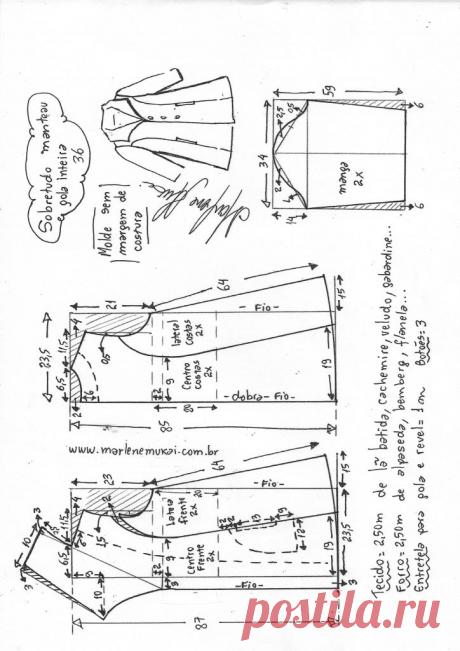 Sobretudo manteau
e gola inteira
36
Molde sem
margem de
costura
59
34
14
2,5
0,5
2
1
manga
2x
6
6
21
64
15
23,5
11,5
6,5
4
6
2
0,5
9
2
20
19
85
lateral
costas
2x
Centro
costas
2x
- Fio -
- dobra - Fio -
www.marlenemukai.com.br
23
64
15
23,5
11,5
6,5
4
2
15
3
10
3
3
10
9
2
3
20
13
9
12
19
3
87
lateral
frente
2x
Centro
Frente
2x
- Fio -
- Fio -
Tecido = 2,50m de lã batida, cachemire, veludo, gabardine...
Forro = 2,50m de alpaseda, bemberg, flanela...
Entretela para gola e revel = 1m Botões = 3
postila.ru